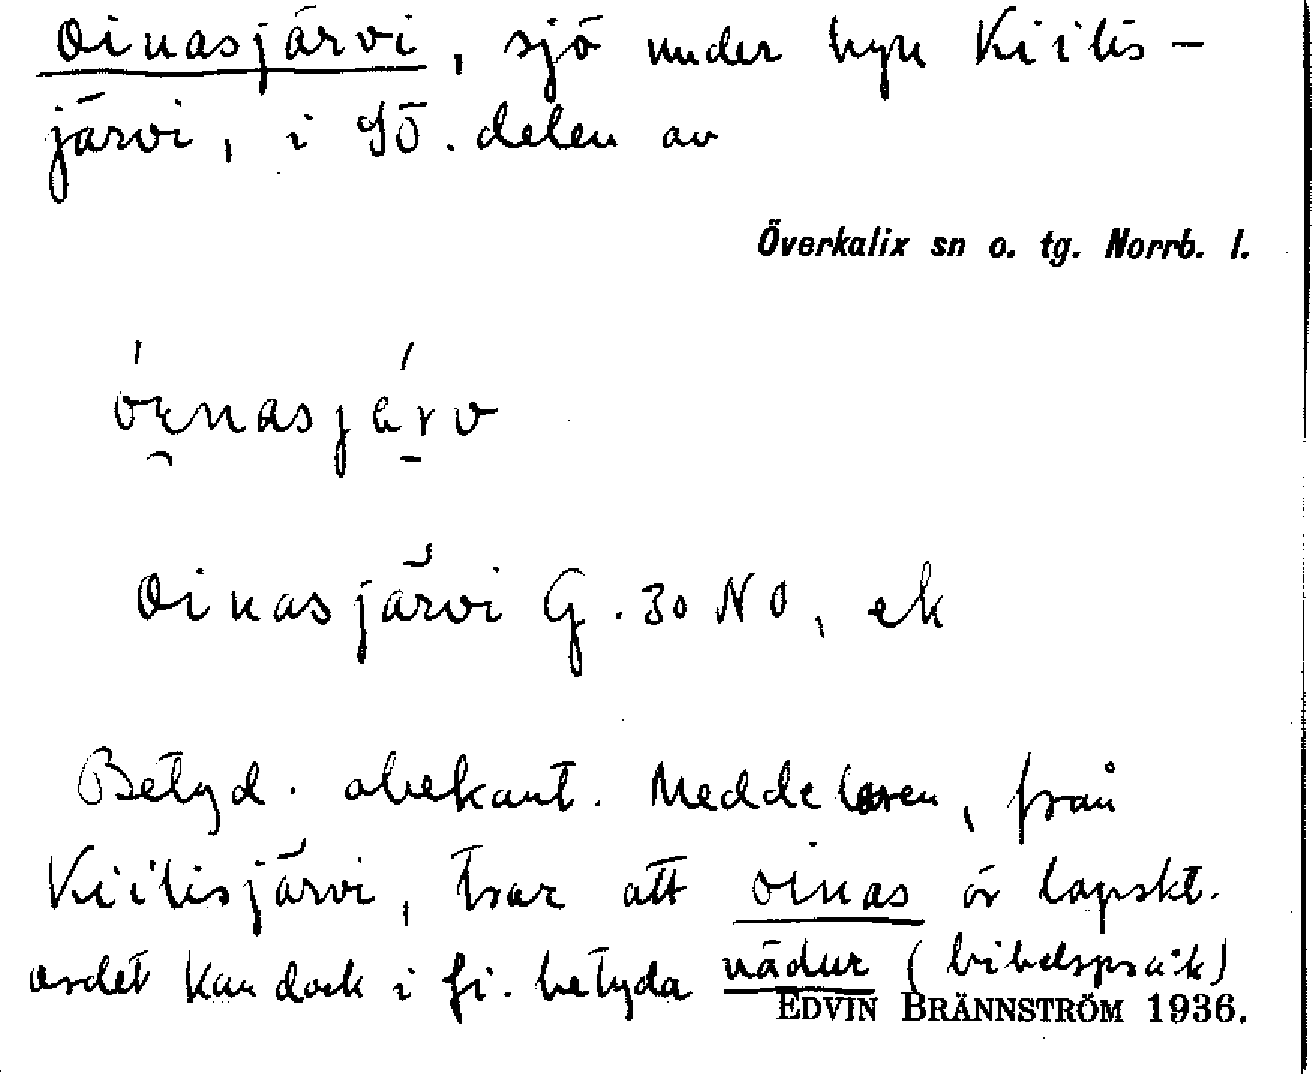 Oinasjärvi, sjö under byn Kiilis-
järvi, i SÖ. delen av
Överkalix sn o. tg. Norrb. l.
Oinasjärvi G. 30 NO, ek
Betyd. obekant. Meddelaren, från
Kiilisjärvi, tror att oinas är lapskt.
ordet kan dock i fi. betyda vädur (bibelspråk)
EDVIN BRÄNNSTRÖM 1936.